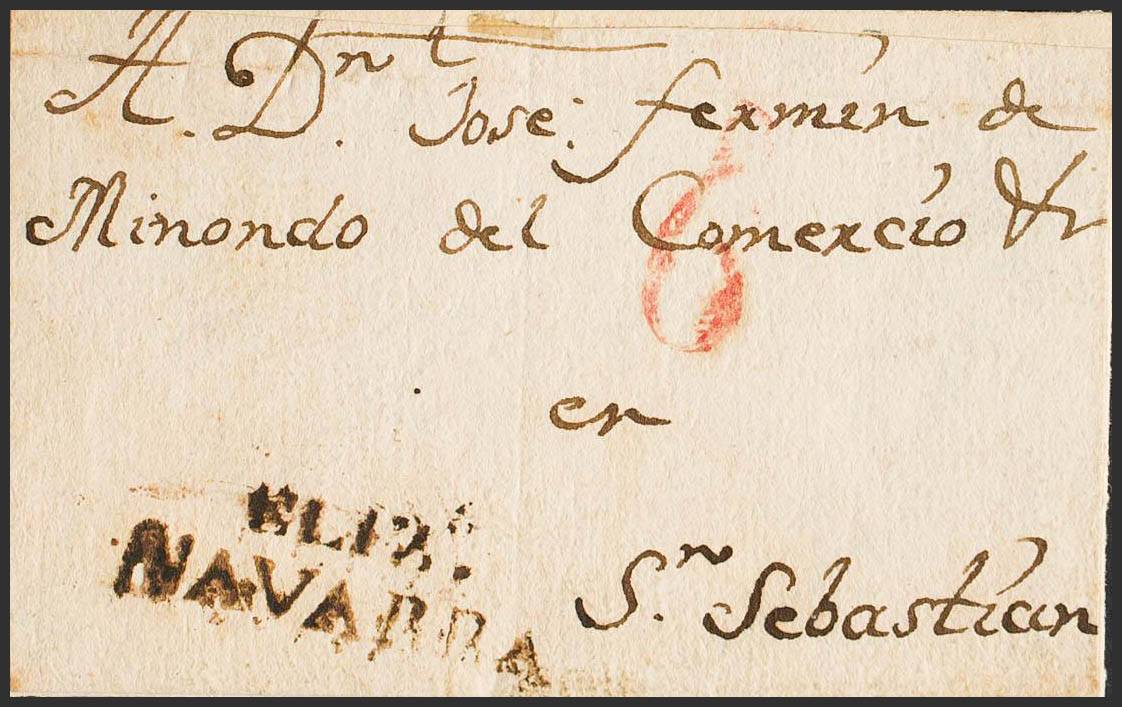 A. Dn. Jose fermin de
Minondo del Comercio &
6
en
Sn. Sebastian
ELIZ.
NAVARRA